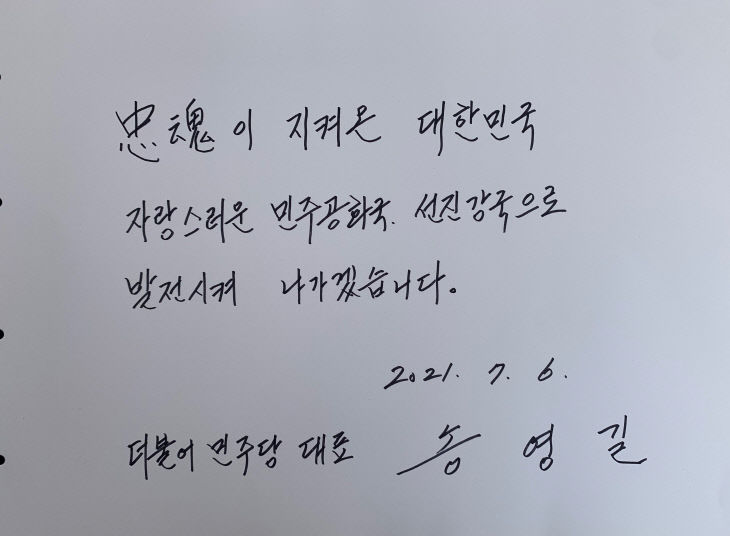 忠魂이 지켜온 대한민국
자랑스러운 민주공화국. 선진강국으로
발전시켜 나가겠습니다.
2021. 7. 6.
더불어 민주당 대표 송영길